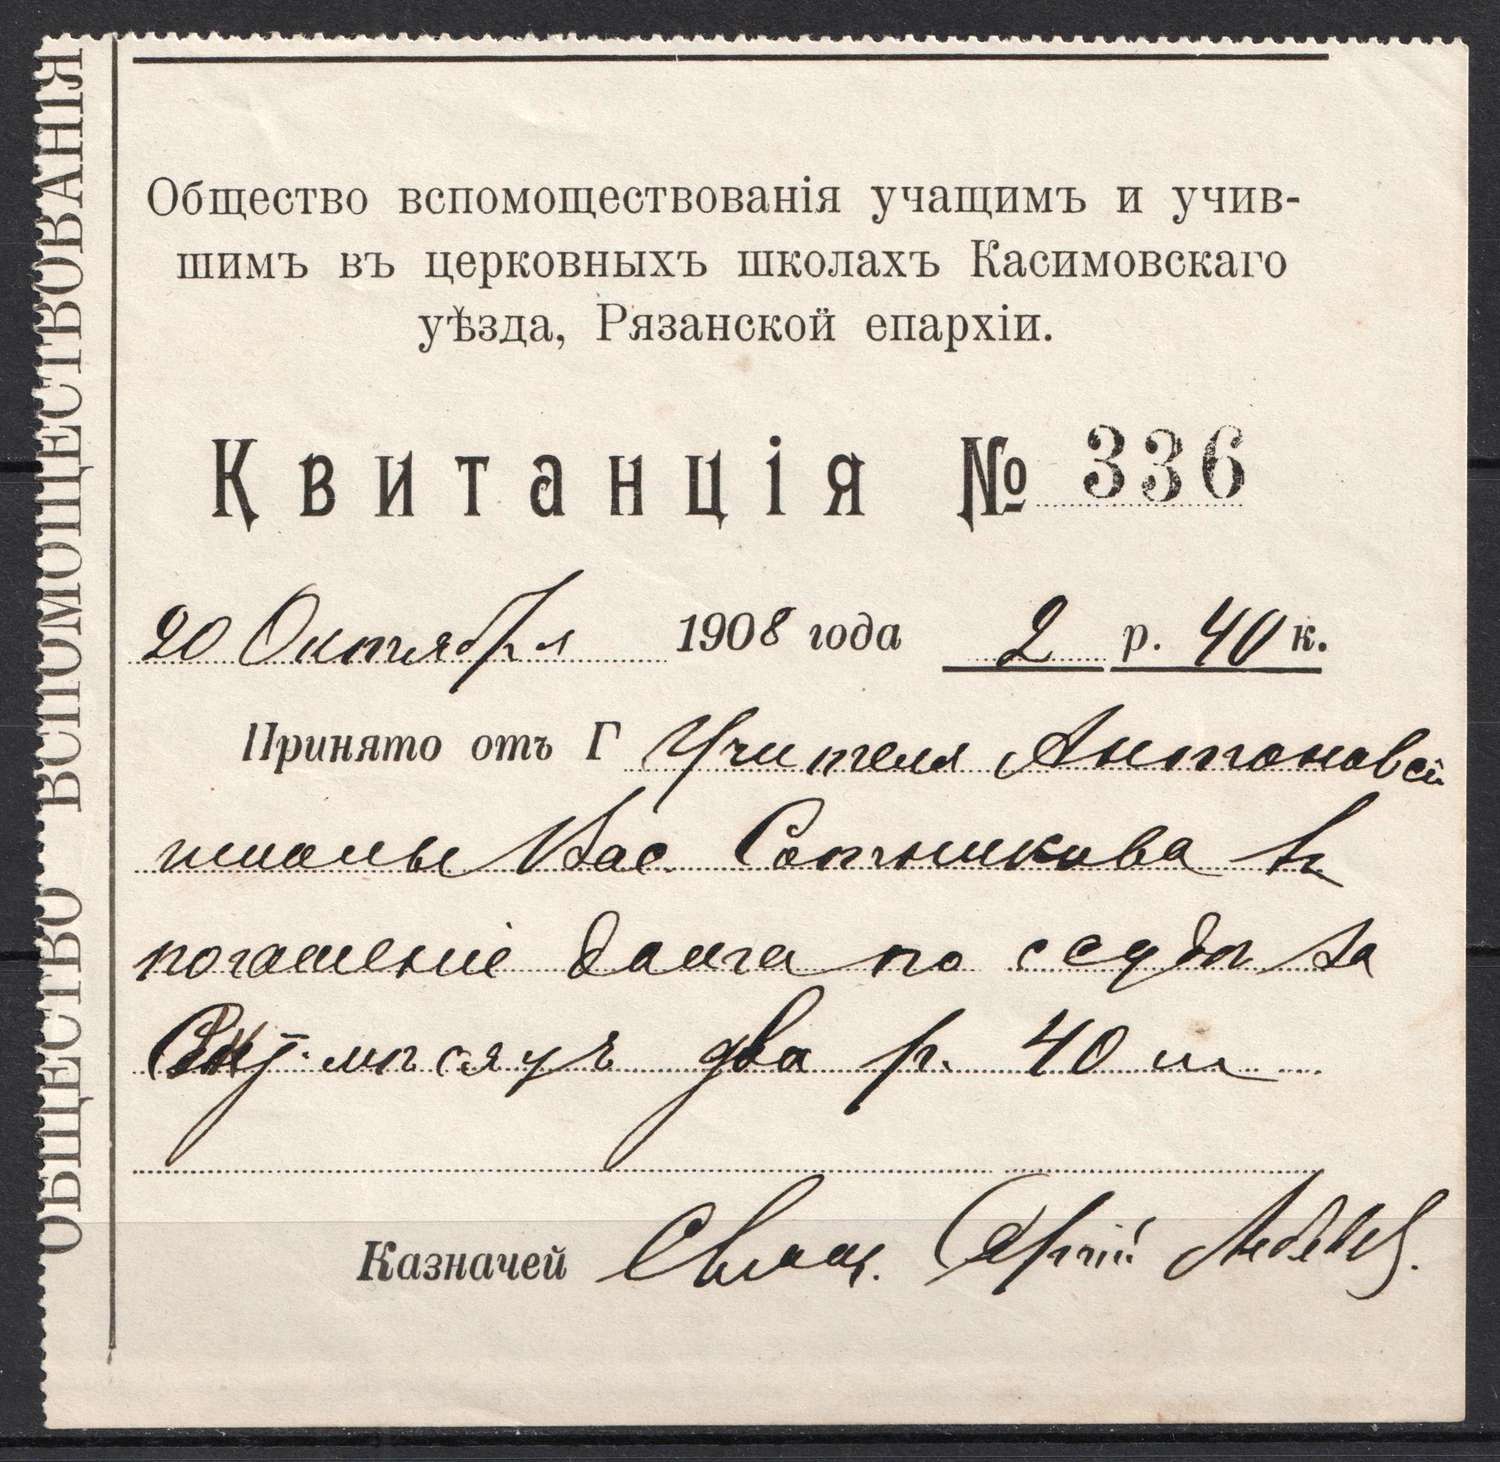 ОБЩЕСТВО ВСПОМОЩЕСТВОВАНІЯ
Общество вспомоществованія учащимъ и учив-
шимъ въ церковныхъ школахъ Касимовскаго
уѣзда, Рязанской епархіи.
Квитанція № 336
20 Октября 1908 года 2 р. 40 к.
Принято отъ Г Учителя Антоновской
школы Вас. Сотникова въ
погашеніе долга по ссудѣ за
мѣсяцъ два р. 40 к
Казначей Свящ. Сергій Лебедевъ.